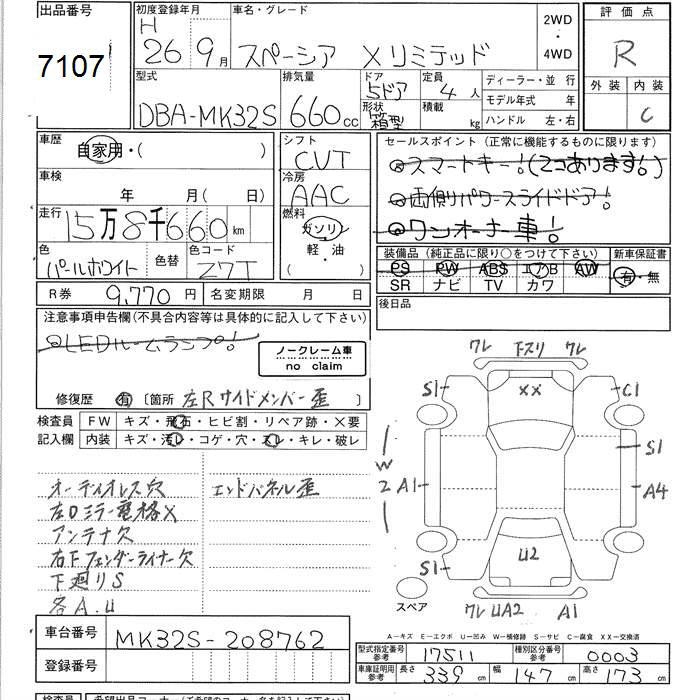 出品番号 7107
初度登録年月 車名・グレード 2WD・4WD 評価点
H 26年 9月 スペーシア Xリミテッド R
型式 DBA-MK32S 排気量 660cc ドア 5ドア 形状 箱型 定員 4人 積載 kg
ディーラー・並行
モデル年式 年
ハンドル 左・右
外装 内装 C
車歴 自家用・( )
車検 年 月( 日)
走行 15万8千660km
色 パールホワイト 色替 色コード Z7T
シフト CVT
冷房 AAC
燃料 ガソリン 軽・油
セールスポイント(正常に機能するものに限ります)
◎スマートキー!(2コあります!)
◎両側パワースライドドア!
◎ワンオーナー車!
装備品(純正品に限り○をつけて下さい) 新車保証書
PS PW ABS エアB AW 有・無
SR ナビ TV カワ
R券 9,770円 名変期限 月 日
後日品
注意事項申告欄(不具合内容等は具体的に記入して下さい)
◎LEDルームランプ!
ノークレーム車
no claim
修復歴 有 〔箇所 左Rサイドメンバー歪 〕
検査員記入欄 FW キズ・飛石・ヒビ割・リペア跡・X要
内装 キズ・汚レ・コゲ・穴・スレ・キレ・破レ
オーディオレス穴 エンドパネル歪
左Dミラー電格X
アンテナ欠
右Fフェンダーライナー欠
下廻りS
各A.U
ワレ 下スリ ワレ
S1 XX C1
S1
W
2 A1 A4
S1 U2 S1
スペア ワレ UA2 A1
A-キズ E-エクボ U-凹み W-補修跡 S-サビ C-腐食 XX-交換済
車台番号 MK32S-208762
型式指定番号 参考 17511 種別区分番号 参考 0003
登録番号
車庫証明用 参考 長さ 339cm 幅 147cm 高さ 173cm
検査員 希望出品コーナー